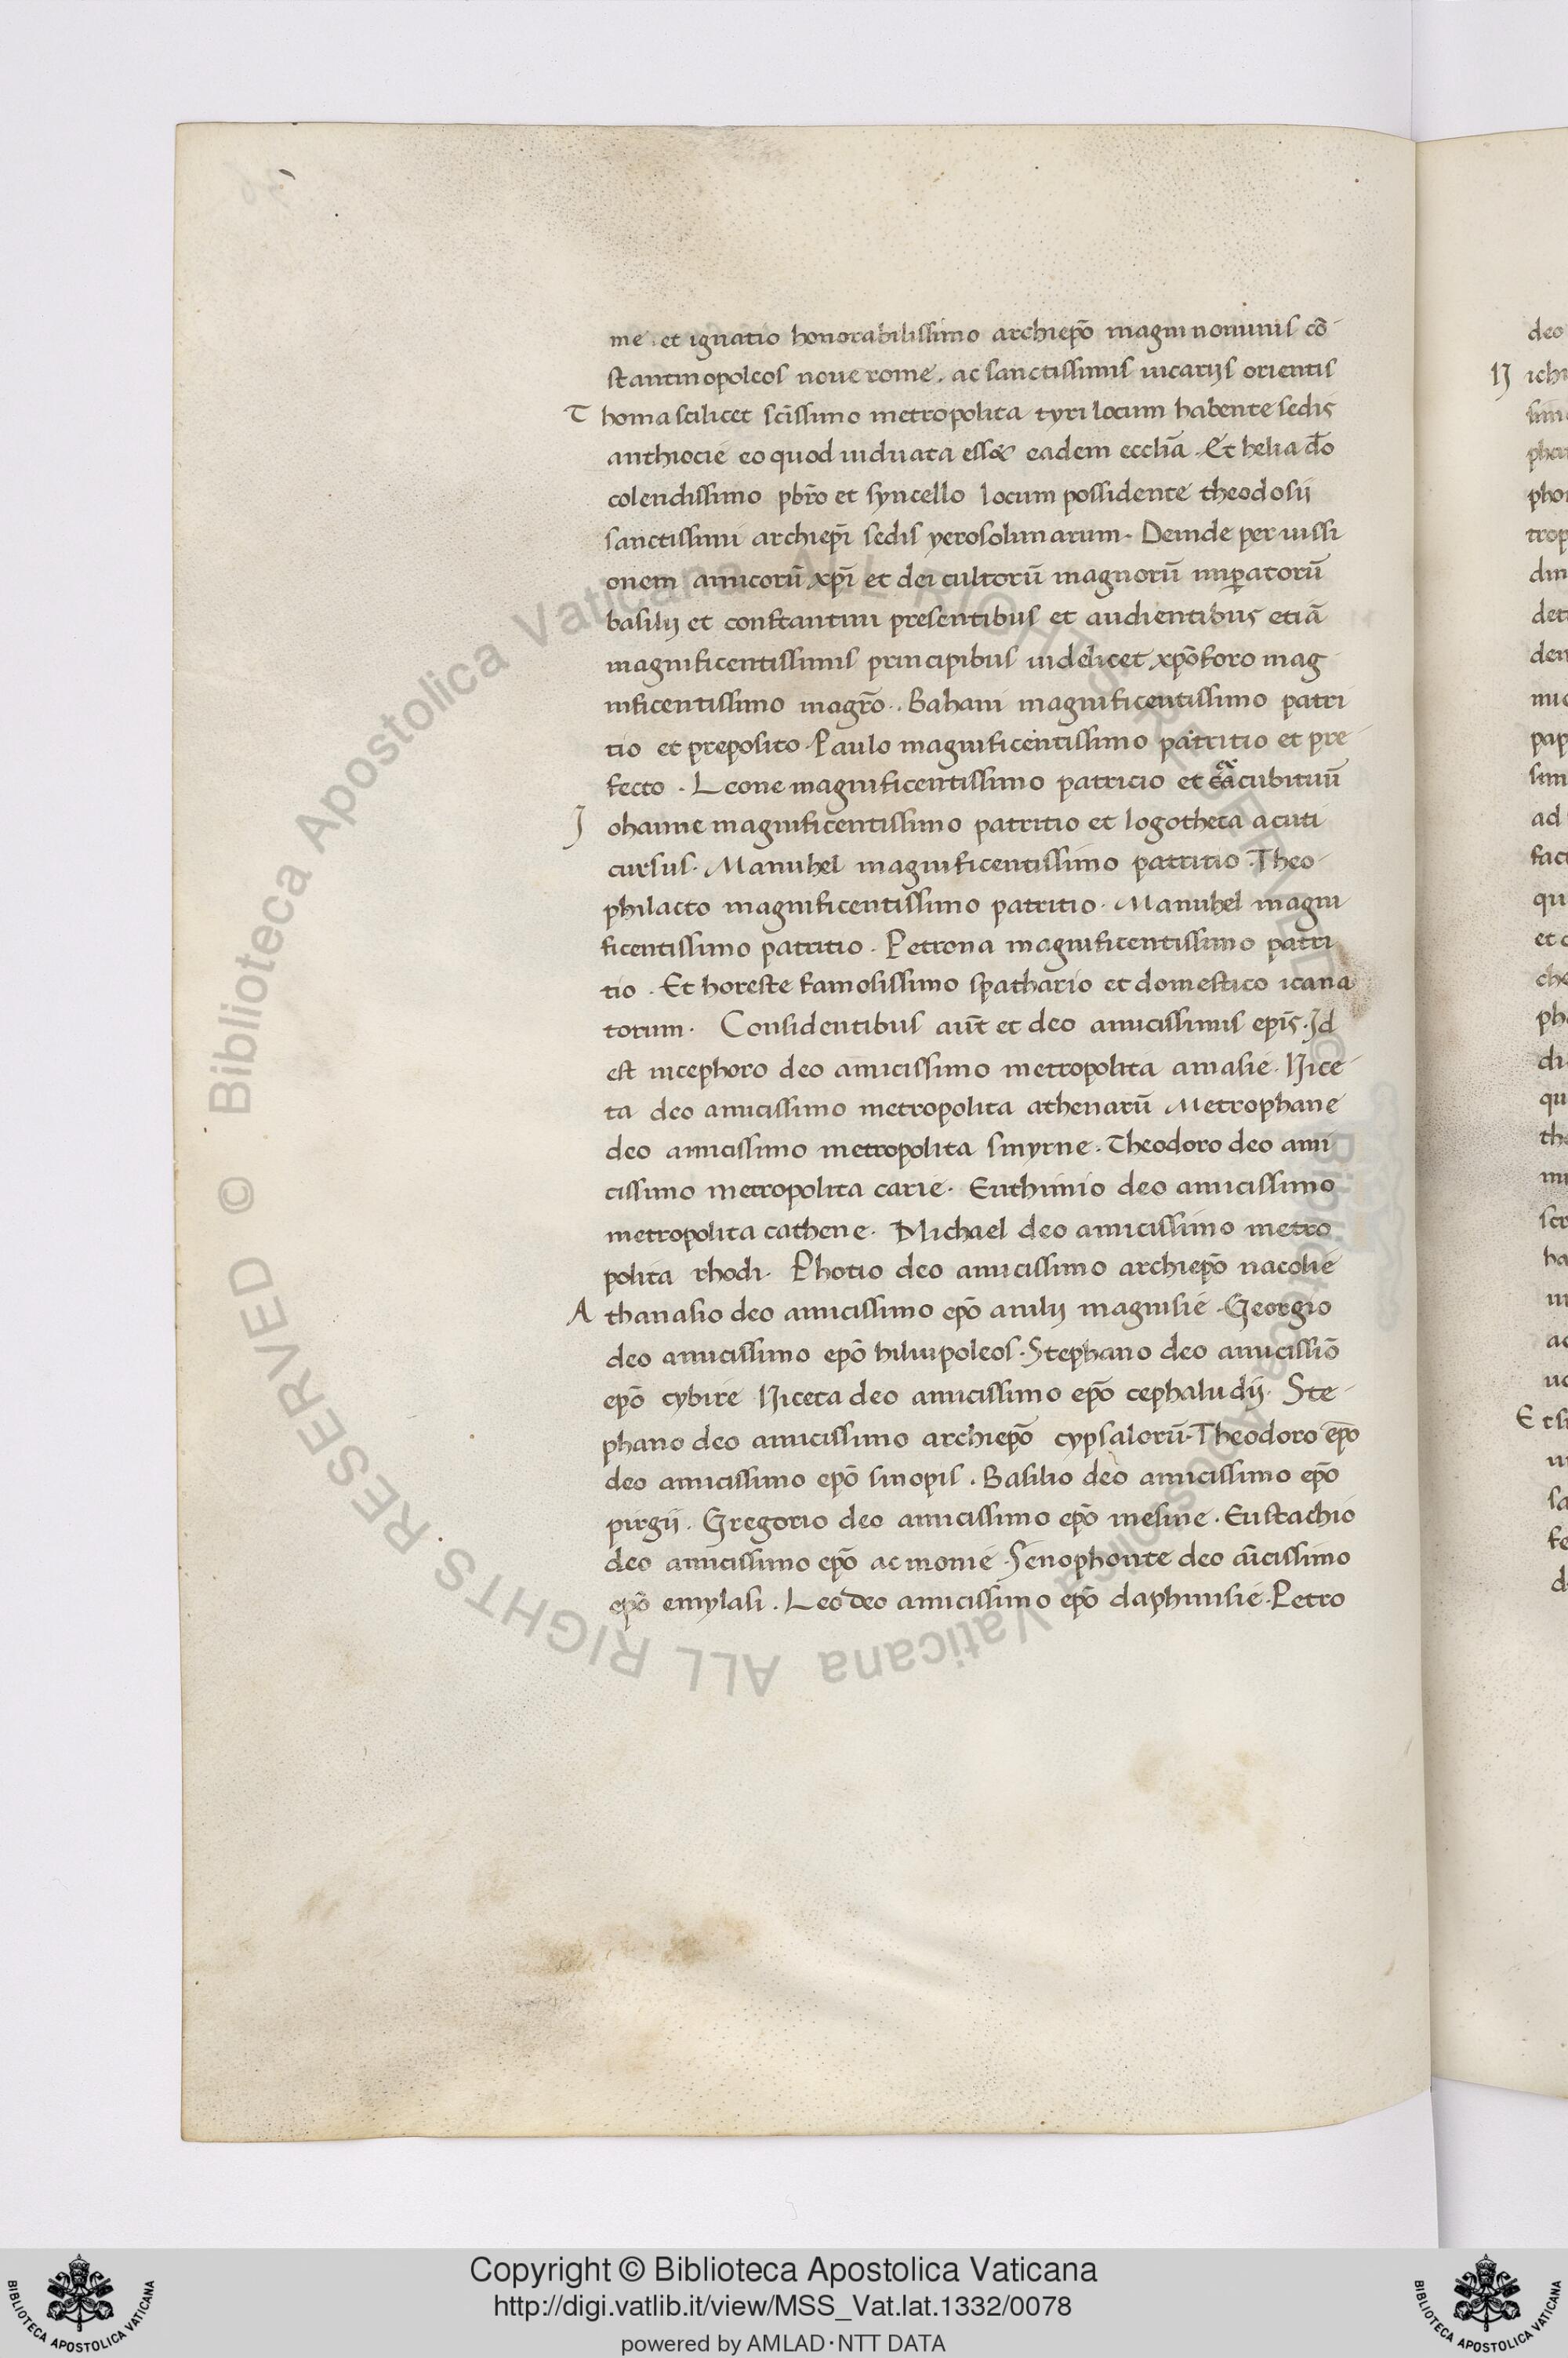 me · et ignatio honorabilissimo archiepõ magni nominis cõ-
stantinopoleos noue rome . ac sanctissimis uicarijs orientis
T homa scilicet scĩssimo metropolita tyri locum habente sedis
anthiocie eo quod uiduata esset eadem ecclĩa . Et helia dõ
colendissimo pbrõ et syncello locum possidente theodosii
sanctissimi archiepĩ sedis yerosolimarum . Deinde per iussi
onem amicorũ xpĩ et dei cultorũ magnorũ imꝑatorũ
basilij et constantini presentibus et audientibus etiã
magnificentissimis principibus uidelicet xpõforo mag
nificentissimo magrõ . Bahani magnificentissimo patri
tio et preposito . Paulo magnificentissimo patritio et pre-
fecto . Leone magnificentissimo patricio et cubituũ
J ohanne magnificentissimo patritio et logotheta acuti
cursus . Manuhel magnificentissimo patritio . Theo-
philacto magnificentissimo patritio . Manuhel magni
ficentissimo patritio . Petrona magnificentissimo patri
tio . Et horeste famosissimo spathario et domestico icana
torum . Considentibus aũt et deo amicissimis epĩs . Jd
est nicephoro deo amicissimo metropolita amasie . Nice-
ta deo amicissimo metropolita athenarũ Metrophane
deo amicissimo metropolita smyrne . Theodoro deo ami
cissimo metropolita carie . Euthimio deo amicissimo
metropolita cathene . Michael deo amicissimo metro
polita rhodi . Photio deo amicissimo archiepõ nacolie
A thanasio deo amicissimo epõ amlij magnisie . Georgio
deo amicissimo epõ hiliupoleos . Stephano deo amicissiõ
epõ cybire Niceta deo amicissimo epõ cephaludij . Ste-
phano deo amicissimo archiepõ cypsalorũ . Theodoro epõ
deo amicissimo epõ sinopis . Basilio deo amicissimo epõ
pirgii . Gregorio deo amicissimo epõ mesine . Eustachio
deo amicissimo epõ acmonie . Senophonte deo aĩcissimo
epõ emylasi . Leo deo amicissimo epõ daphnusie . Petro
Copyright © Biblioteca Apostolica Vaticana
http://digi.vatlib.it/view/MSS_Vat.lat.1332/0078
powered by AMLAD·NTT DATA